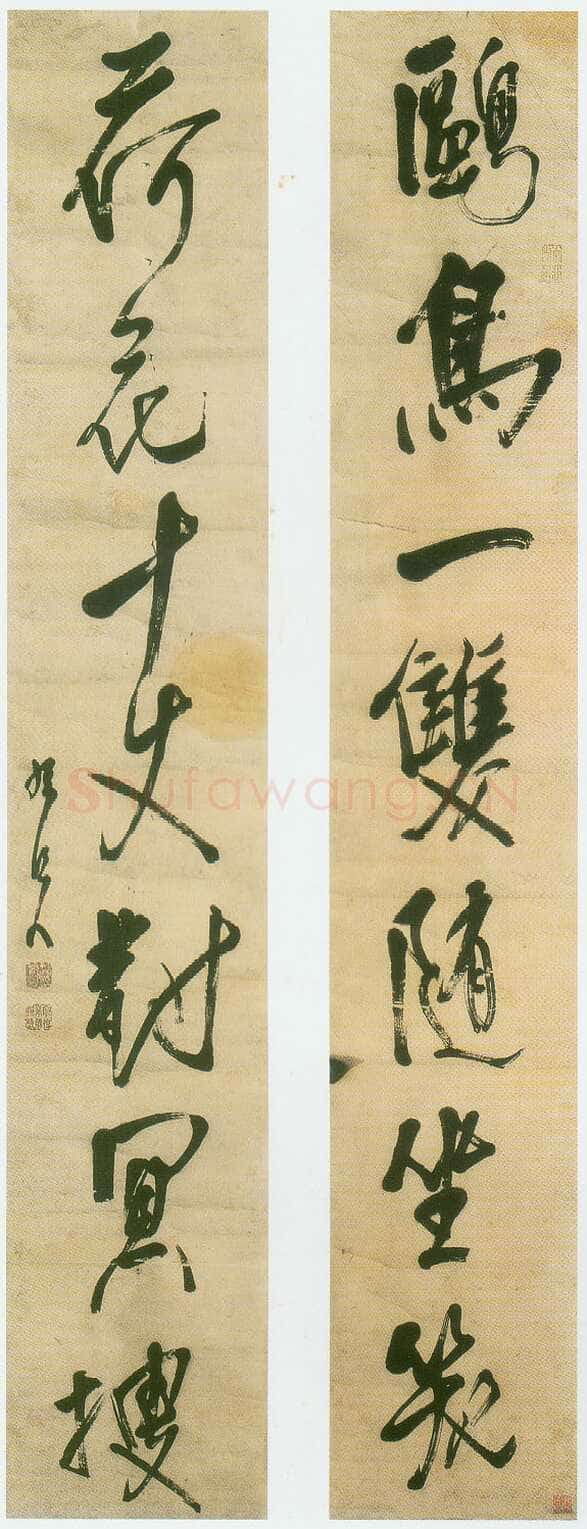 鷗鳥一雙隨坐笑
荷花十丈對冥搜
Shufawang.CN